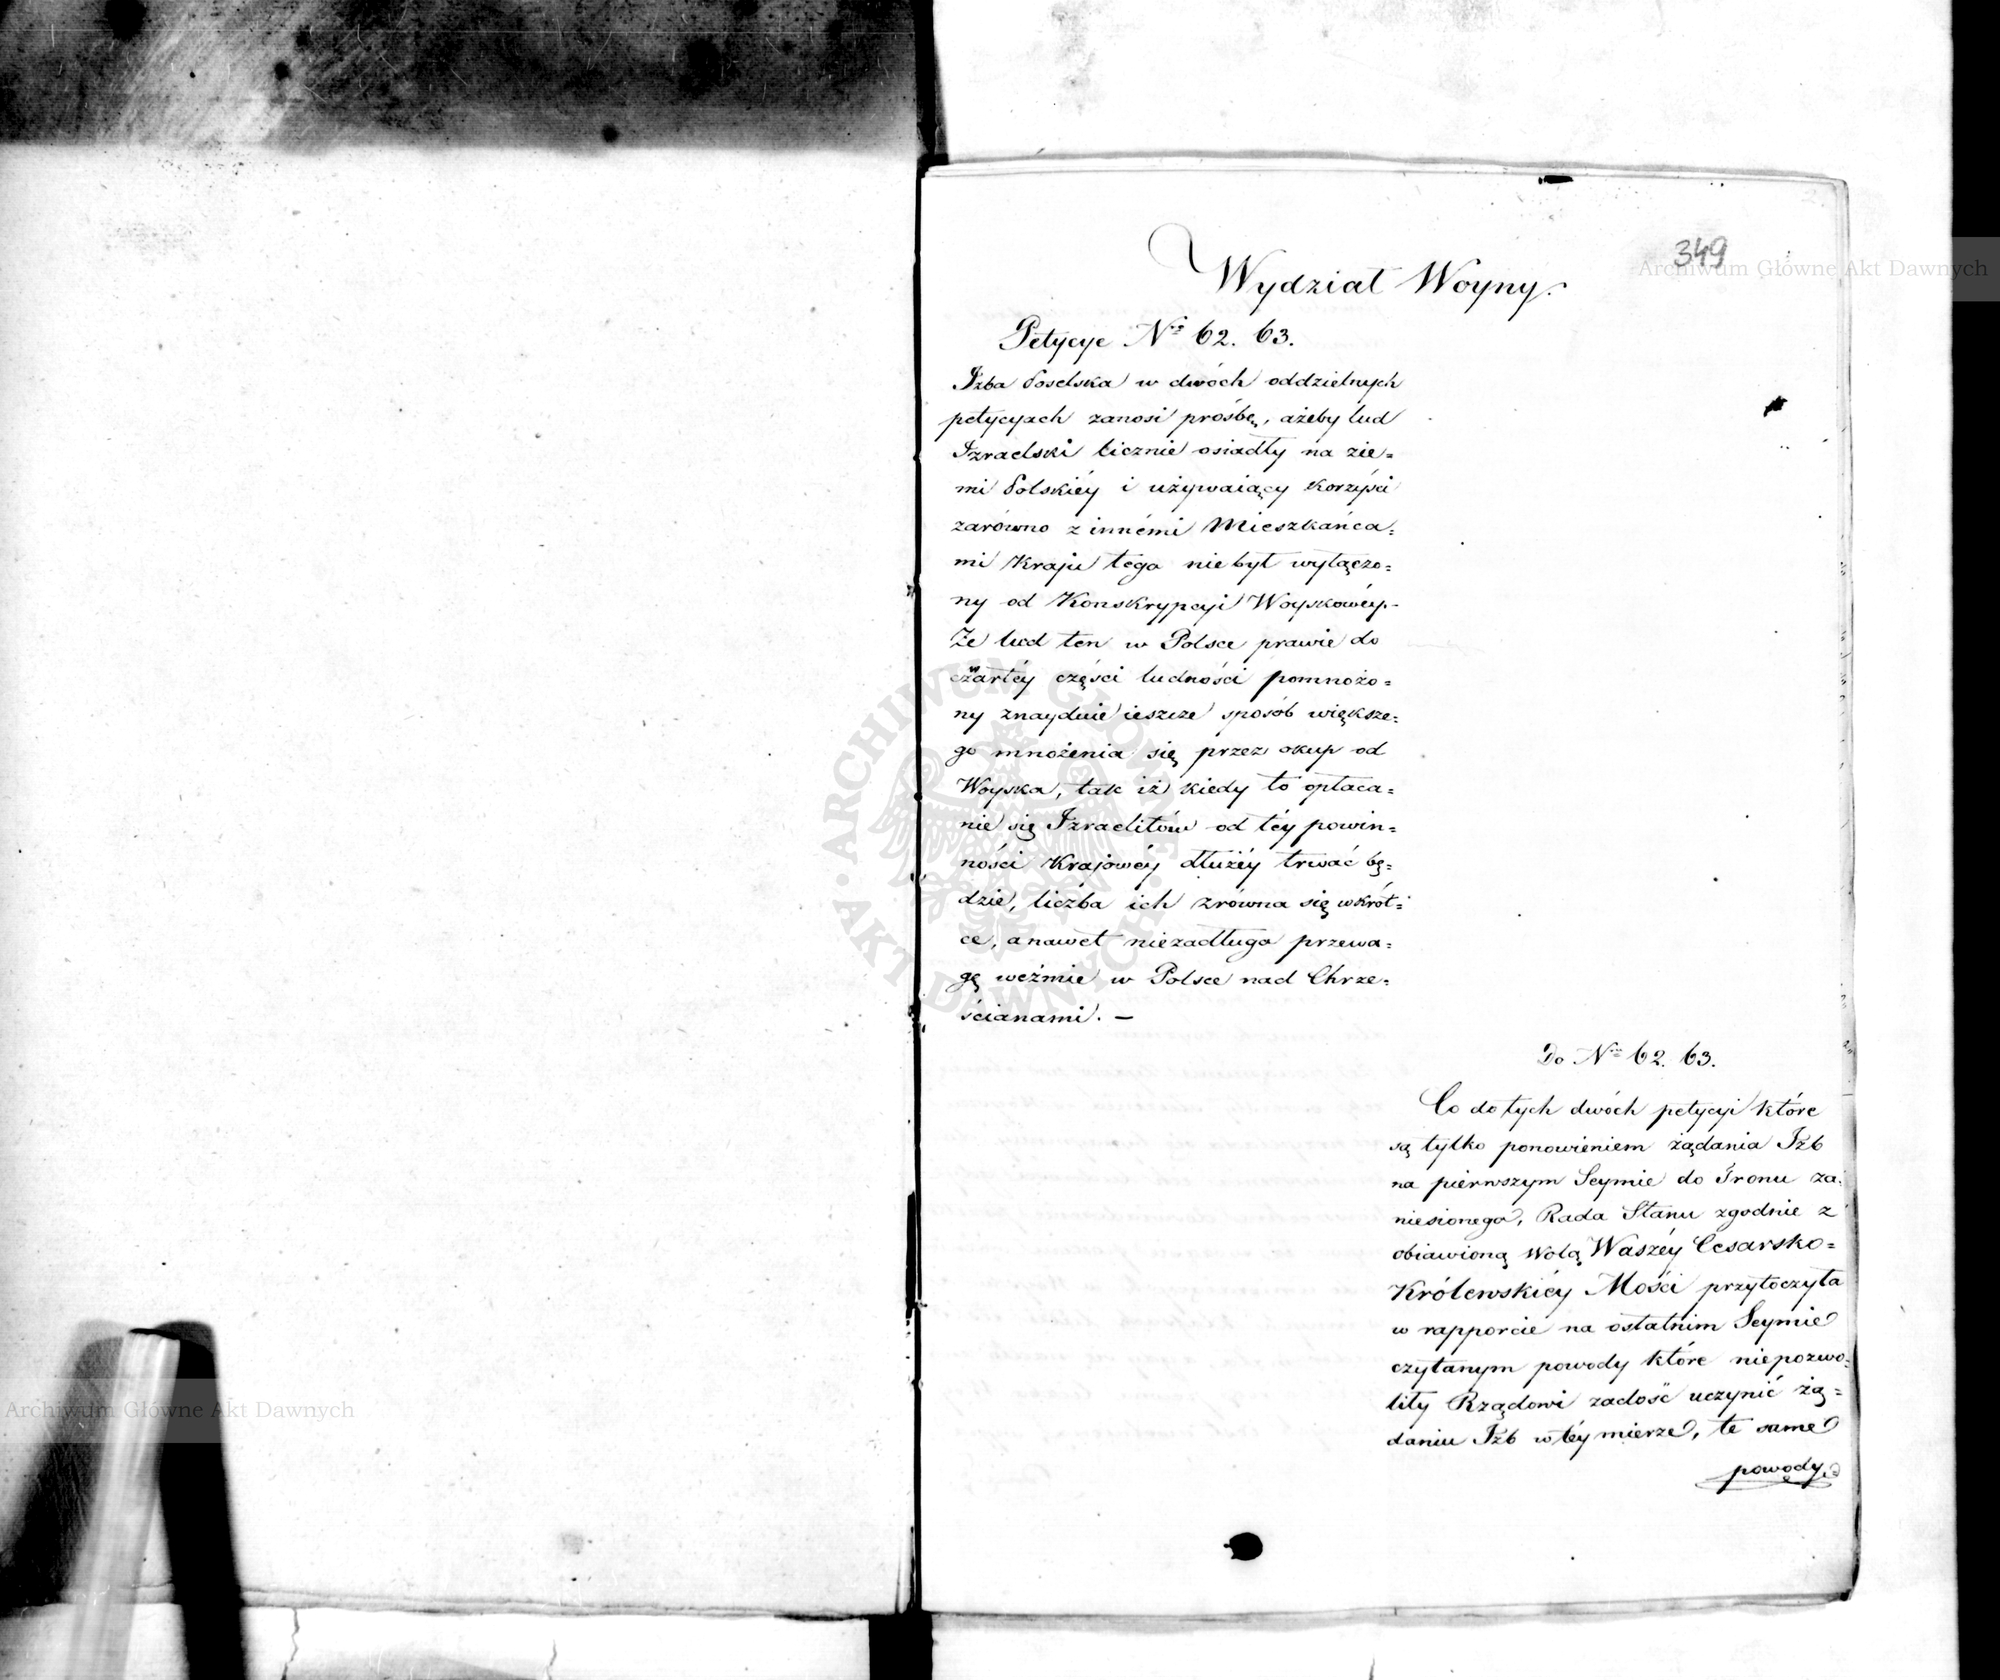 349
Archiwum Główne Akt Dawnych
Wydział Woyny.
Petycye Nro 62. 63.
Izba Poselska w dwóch oddzielnych
petycyach zanosi prośbę, ażeby lud
Izraelski licznie osiadły na zie=
mi Polskiéy i używaiący korzyści
zarówno z innémi Mieszkańca=
mi Kraju tego nie był wyłączo=
ny od Konskrypcyi Woyskowéy.-
Że lud ten w Polsce prawie do
czwartéy części ludności pomnożo=
ny znayduie ieszcze sposób większe=
go mnożenia się przez okup od
Woyska, tak iż kiedy to opłaca=
nie się Izraelitów od téy powin=
ności Krajowéy dłużéy trwać bę=
dzie, liczba ich zrówna się wkrót=
ce, a nawet niezadługo przewa=
gę weźmie w Polsce nad Chrze=
ścianami. —
ARCHIWUM GŁÓWNE AKT DAWNYCH
Do Nro 62. 63.
Co do tych dwóch petycyi które
są tylko ponowieniem żądania Izb
na pierwszym Seymie do Tronu za=
niesionego, Rada Stanu zgodnie z
obiawioną Wolą Waszéy Cesarsko=
Królewskiéy Mości przytoczyła
w rapporcie na ostatnim Seymie
czytanym powody które niepozwo=
liły Rządowi zadość uczynić żą=
daniu Izb w téy mierze, te same
powody
Archiwum Główne Akt Dawnych